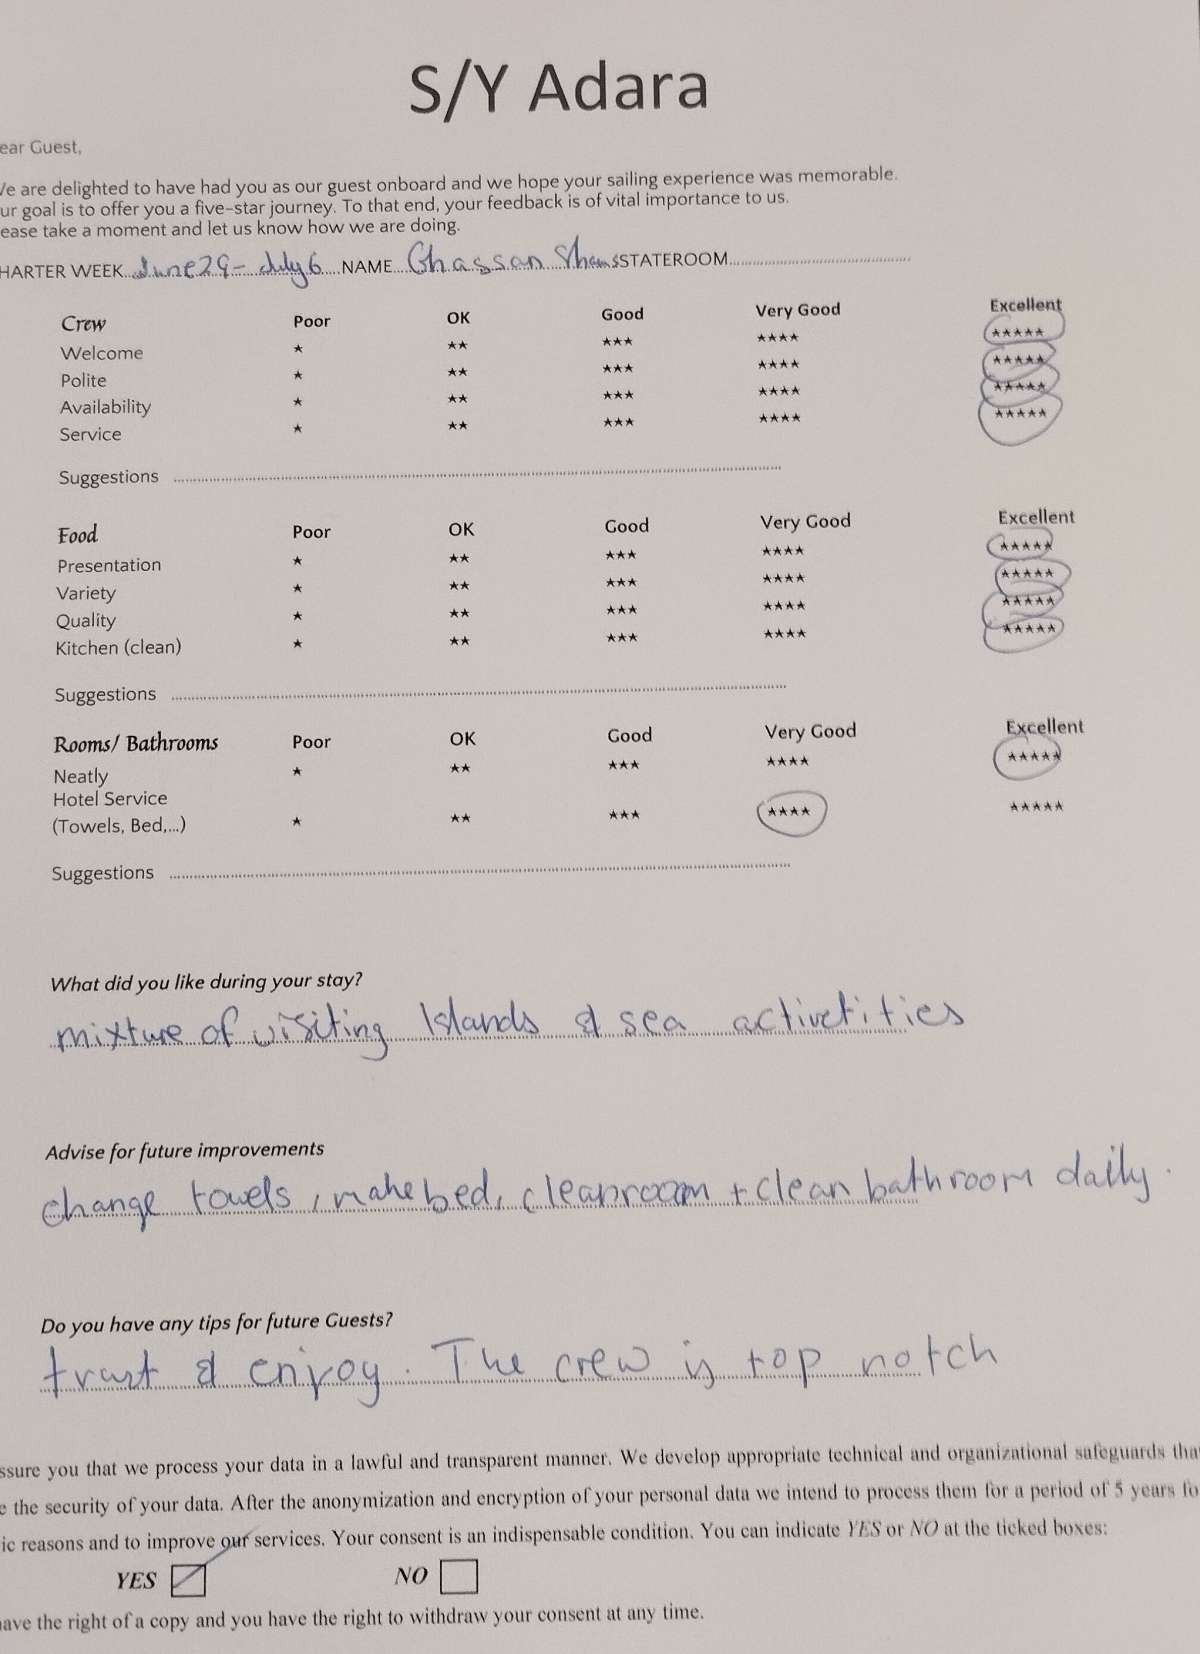 S/Y Adara
ear Guest,
We are delighted to have had you as our guest onboard and we hope your sailing experience was memorable.
ur goal is to offer you a five-star journey. To that end, your feedback is of vital importance to us.
ease take a moment and let us know how we are doing.
HARTER WEEK June 29 - July 6 NAME Ghassan Shams STATEROOM
Crew Poor OK Good Very Good Excellent
Welcome ★ ★★ ★★★ ★★★★ ★★★★★
Polite ★ ★★ ★★★ ★★★★ ★★★★★
Availability ★ ★★ ★★★ ★★★★ ★★★★★
Service ★ ★★ ★★★ ★★★★ ★★★★★
Suggestions
Food Poor OK Good Very Good Excellent
Presentation ★ ★★ ★★★ ★★★★ ★★★★★
Variety ★ ★★ ★★★ ★★★★ ★★★★★
Quality ★ ★★ ★★★ ★★★★ ★★★★★
Kitchen (clean) ★ ★★ ★★★ ★★★★ ★★★★★
Suggestions
Rooms/ Bathrooms Poor OK Good Very Good Excellent
Neatly ★ ★★ ★★★ ★★★★ ★★★★★
Hotel Service
(Towels, Bed,...) ★ ★★ ★★★ ★★★★ ★★★★★
Suggestions
What did you like during your stay?
mixture of visiting Islands & sea activetities
Advise for future improvements
change towels, make bed, clean room + clean bathroom daily.
Do you have any tips for future Guests?
trust & enjoy. The crew is top notch
ssure you that we process your data in a lawful and transparent manner. We develop appropriate technical and organizational safeguards tha
e the security of your data. After the anonymization and encryption of your personal data we intend to process them for a period of 5 years fo
ic reasons and to improve our services. Your consent is an indispensable condition. You can indicate YES or NO at the ticked boxes:
YES NO
have the right of a copy and you have the right to withdraw your consent at any time.